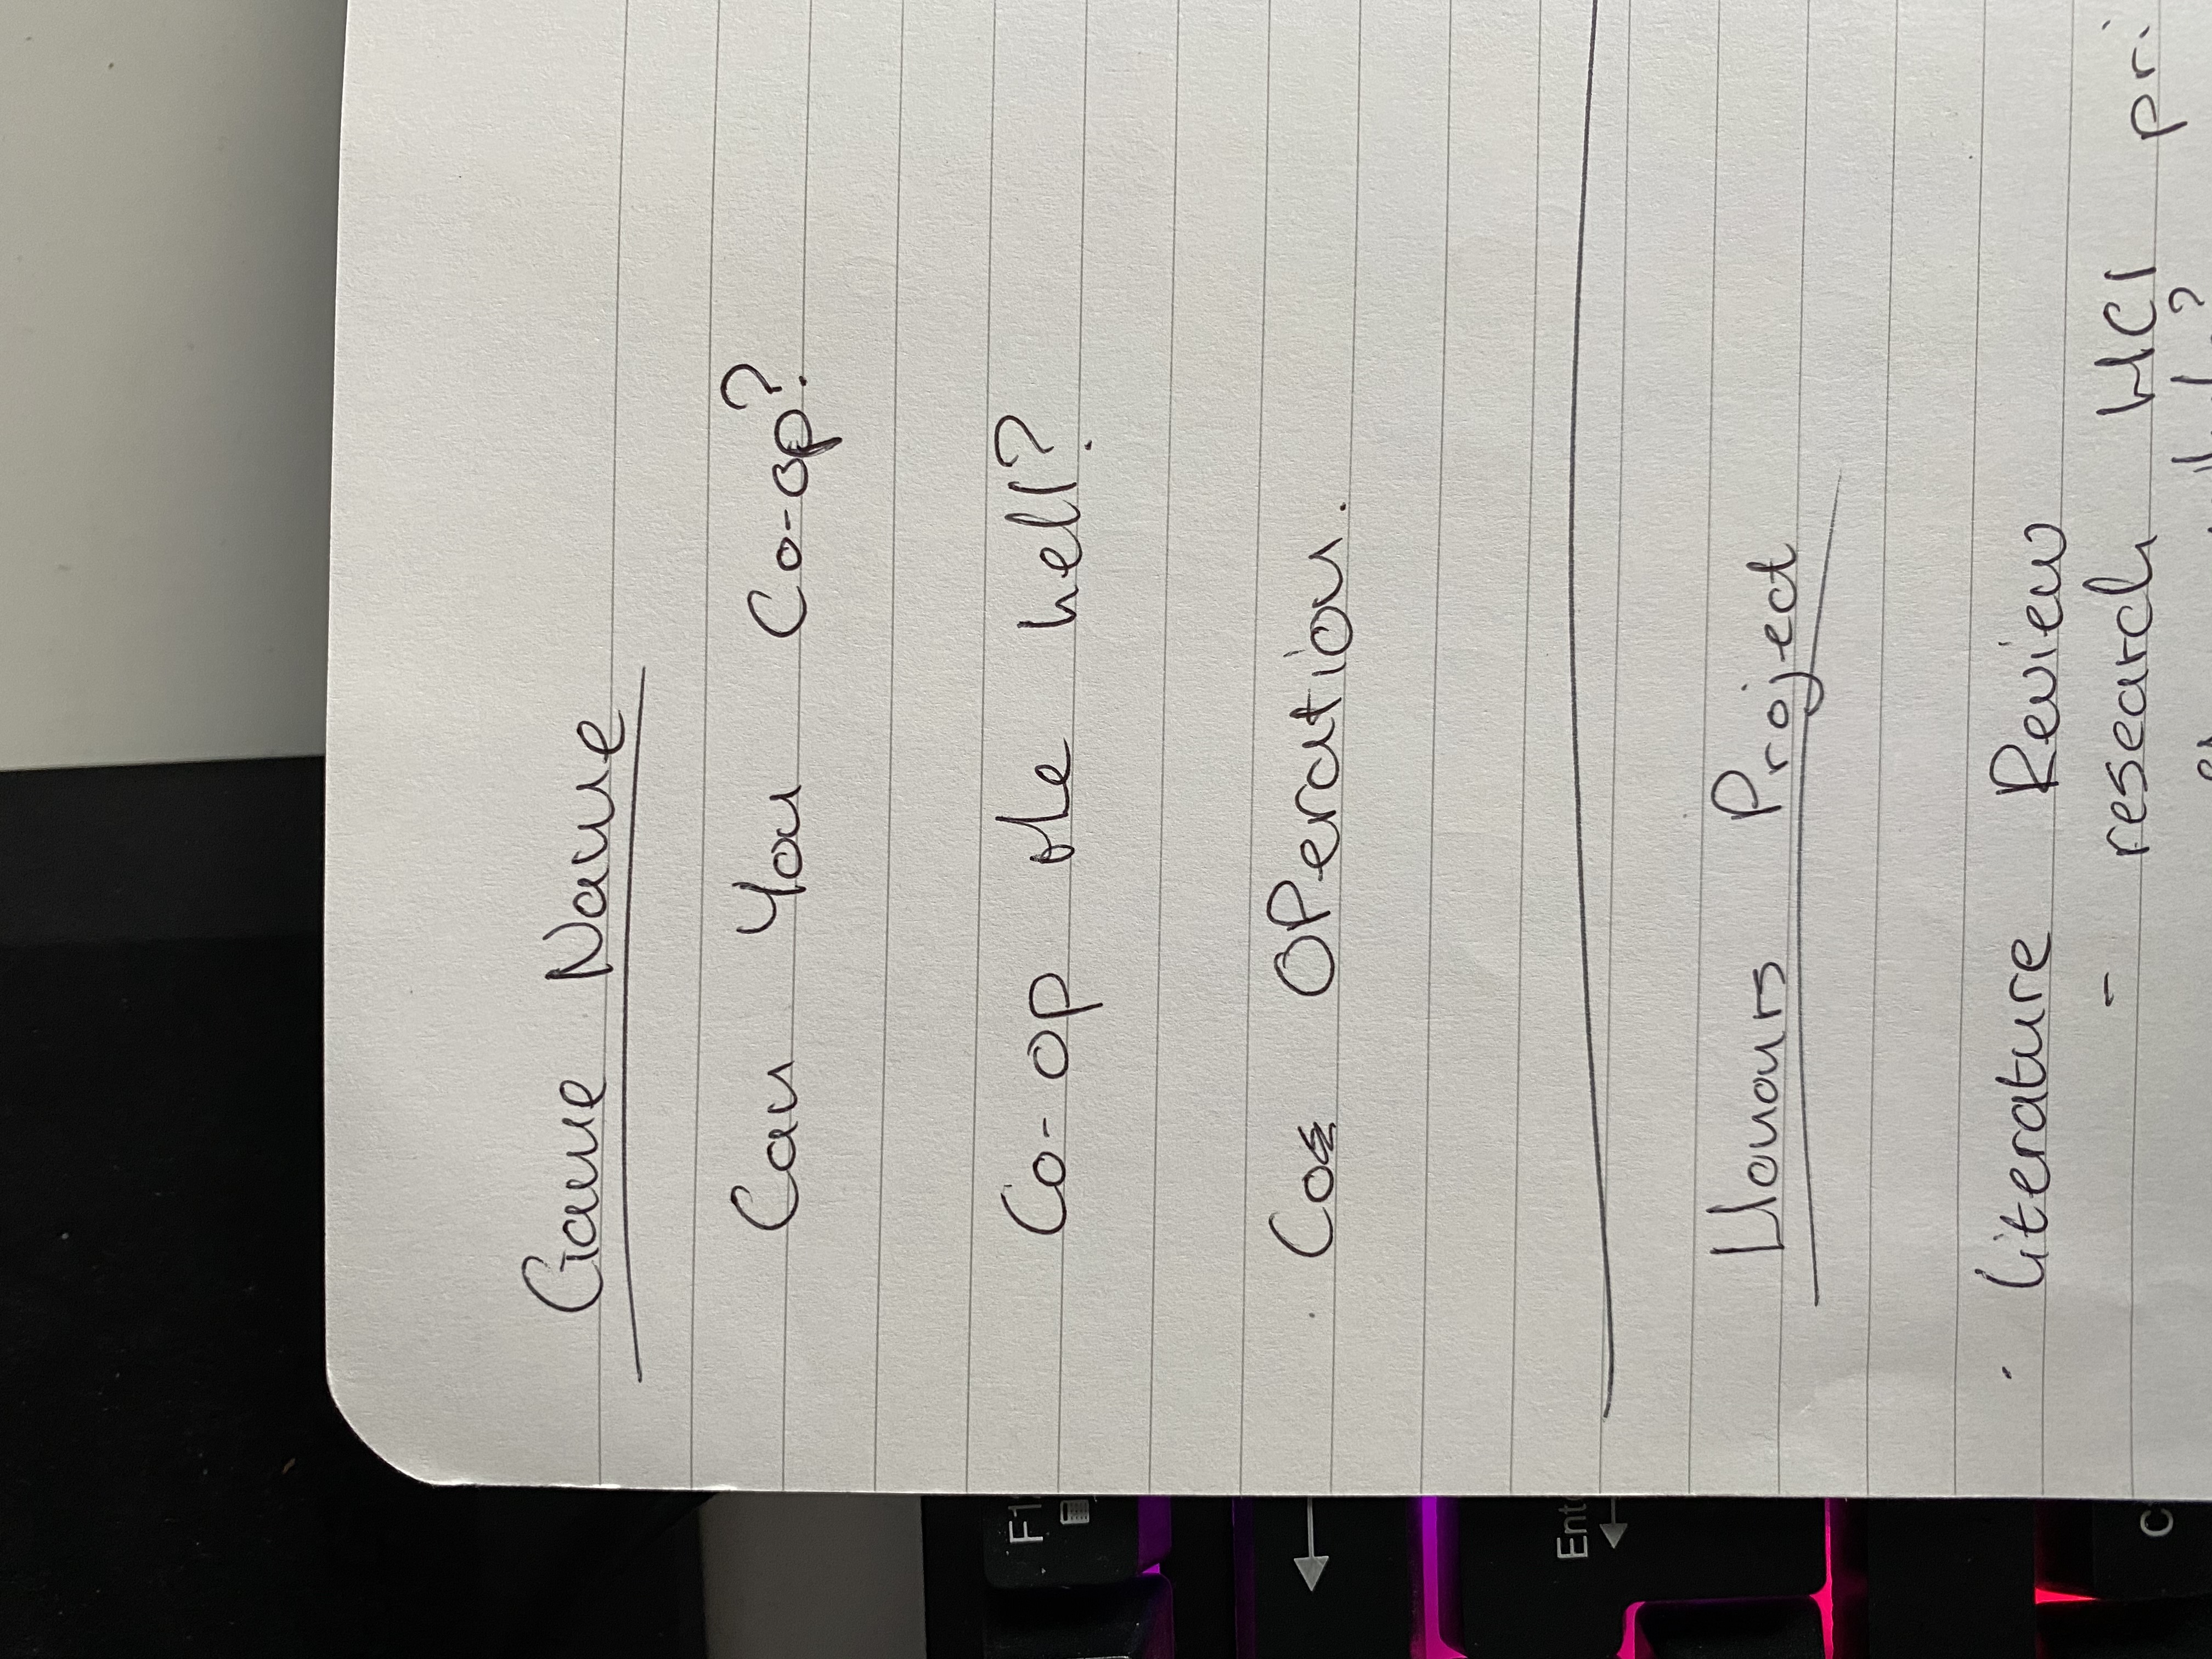 Game Name
Can You Co-op?
Co-op the hell?
Co OPeration.
Honours Project
· Literature Review
- research HCI pri
F1
Ent
C